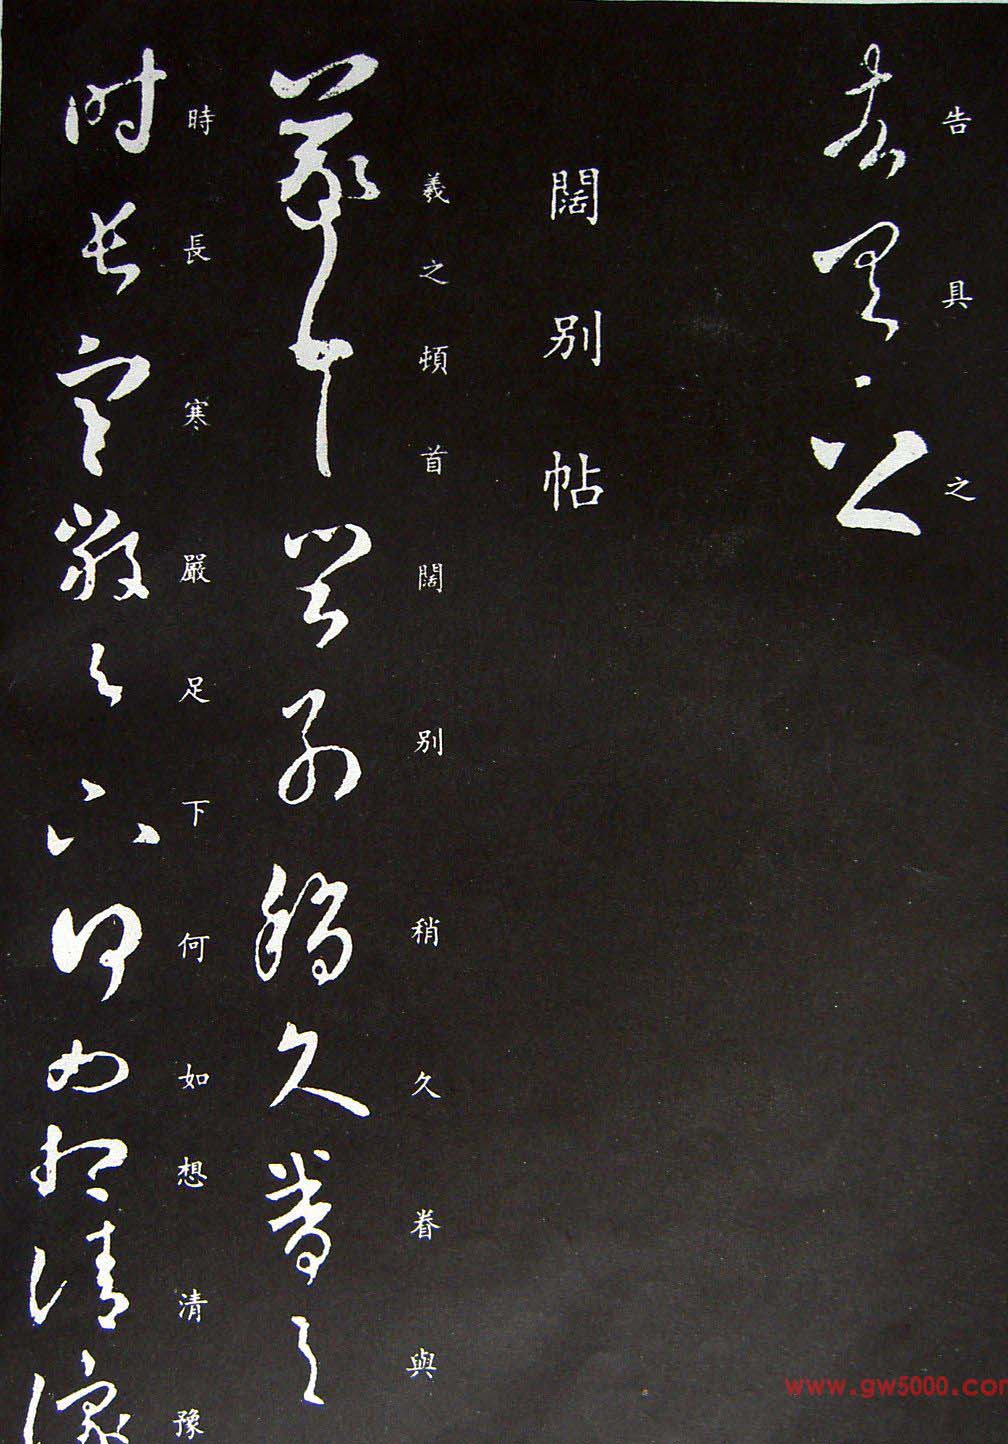 告具之
闊別帖
羲之頓首闊別稍久眷與
時長寒嚴足下何如想清豫
www.gw5000.com